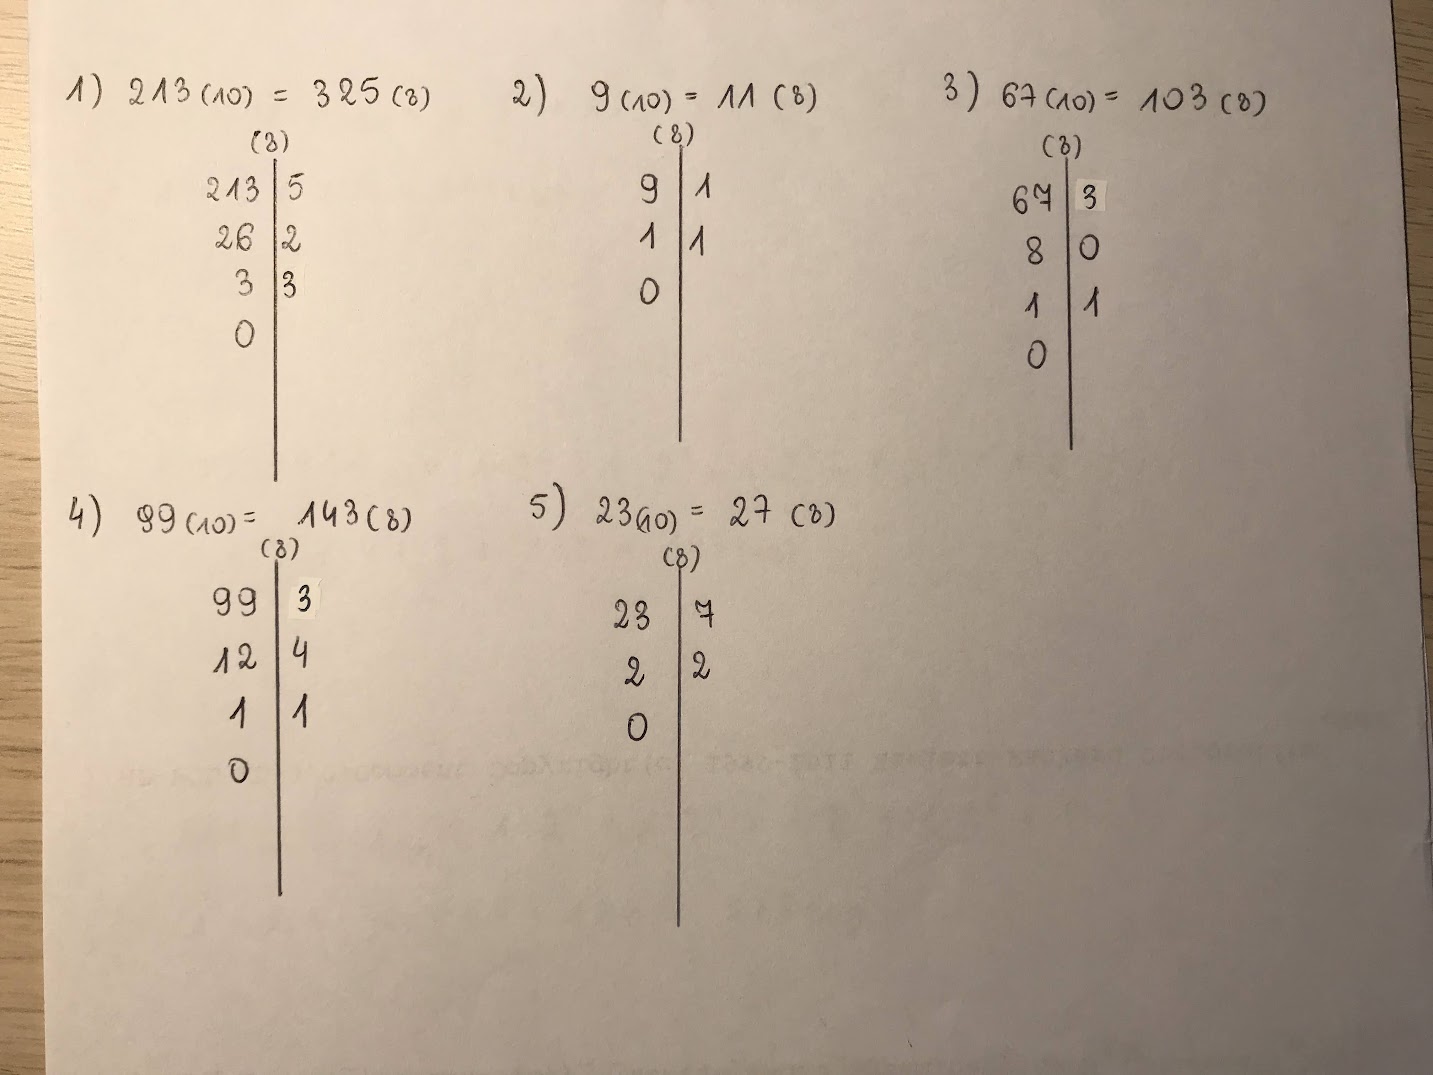 1) 213 (10) = 325 (8)
(8)
213 | 5
26 | 2
3 | 3
0
2) 9 (10) = 11 (8)
(8)
9 | 1
1 | 1
0
3) 67 (10) = 103 (8)
(8)
67 | 3
8 | 0
1 | 1
0
4) 99 (10) = 143 (8)
(8)
99 | 3
12 | 4
1 | 1
0
5) 23 (10) = 27 (8)
(8)
23 | 7
2 | 2
0